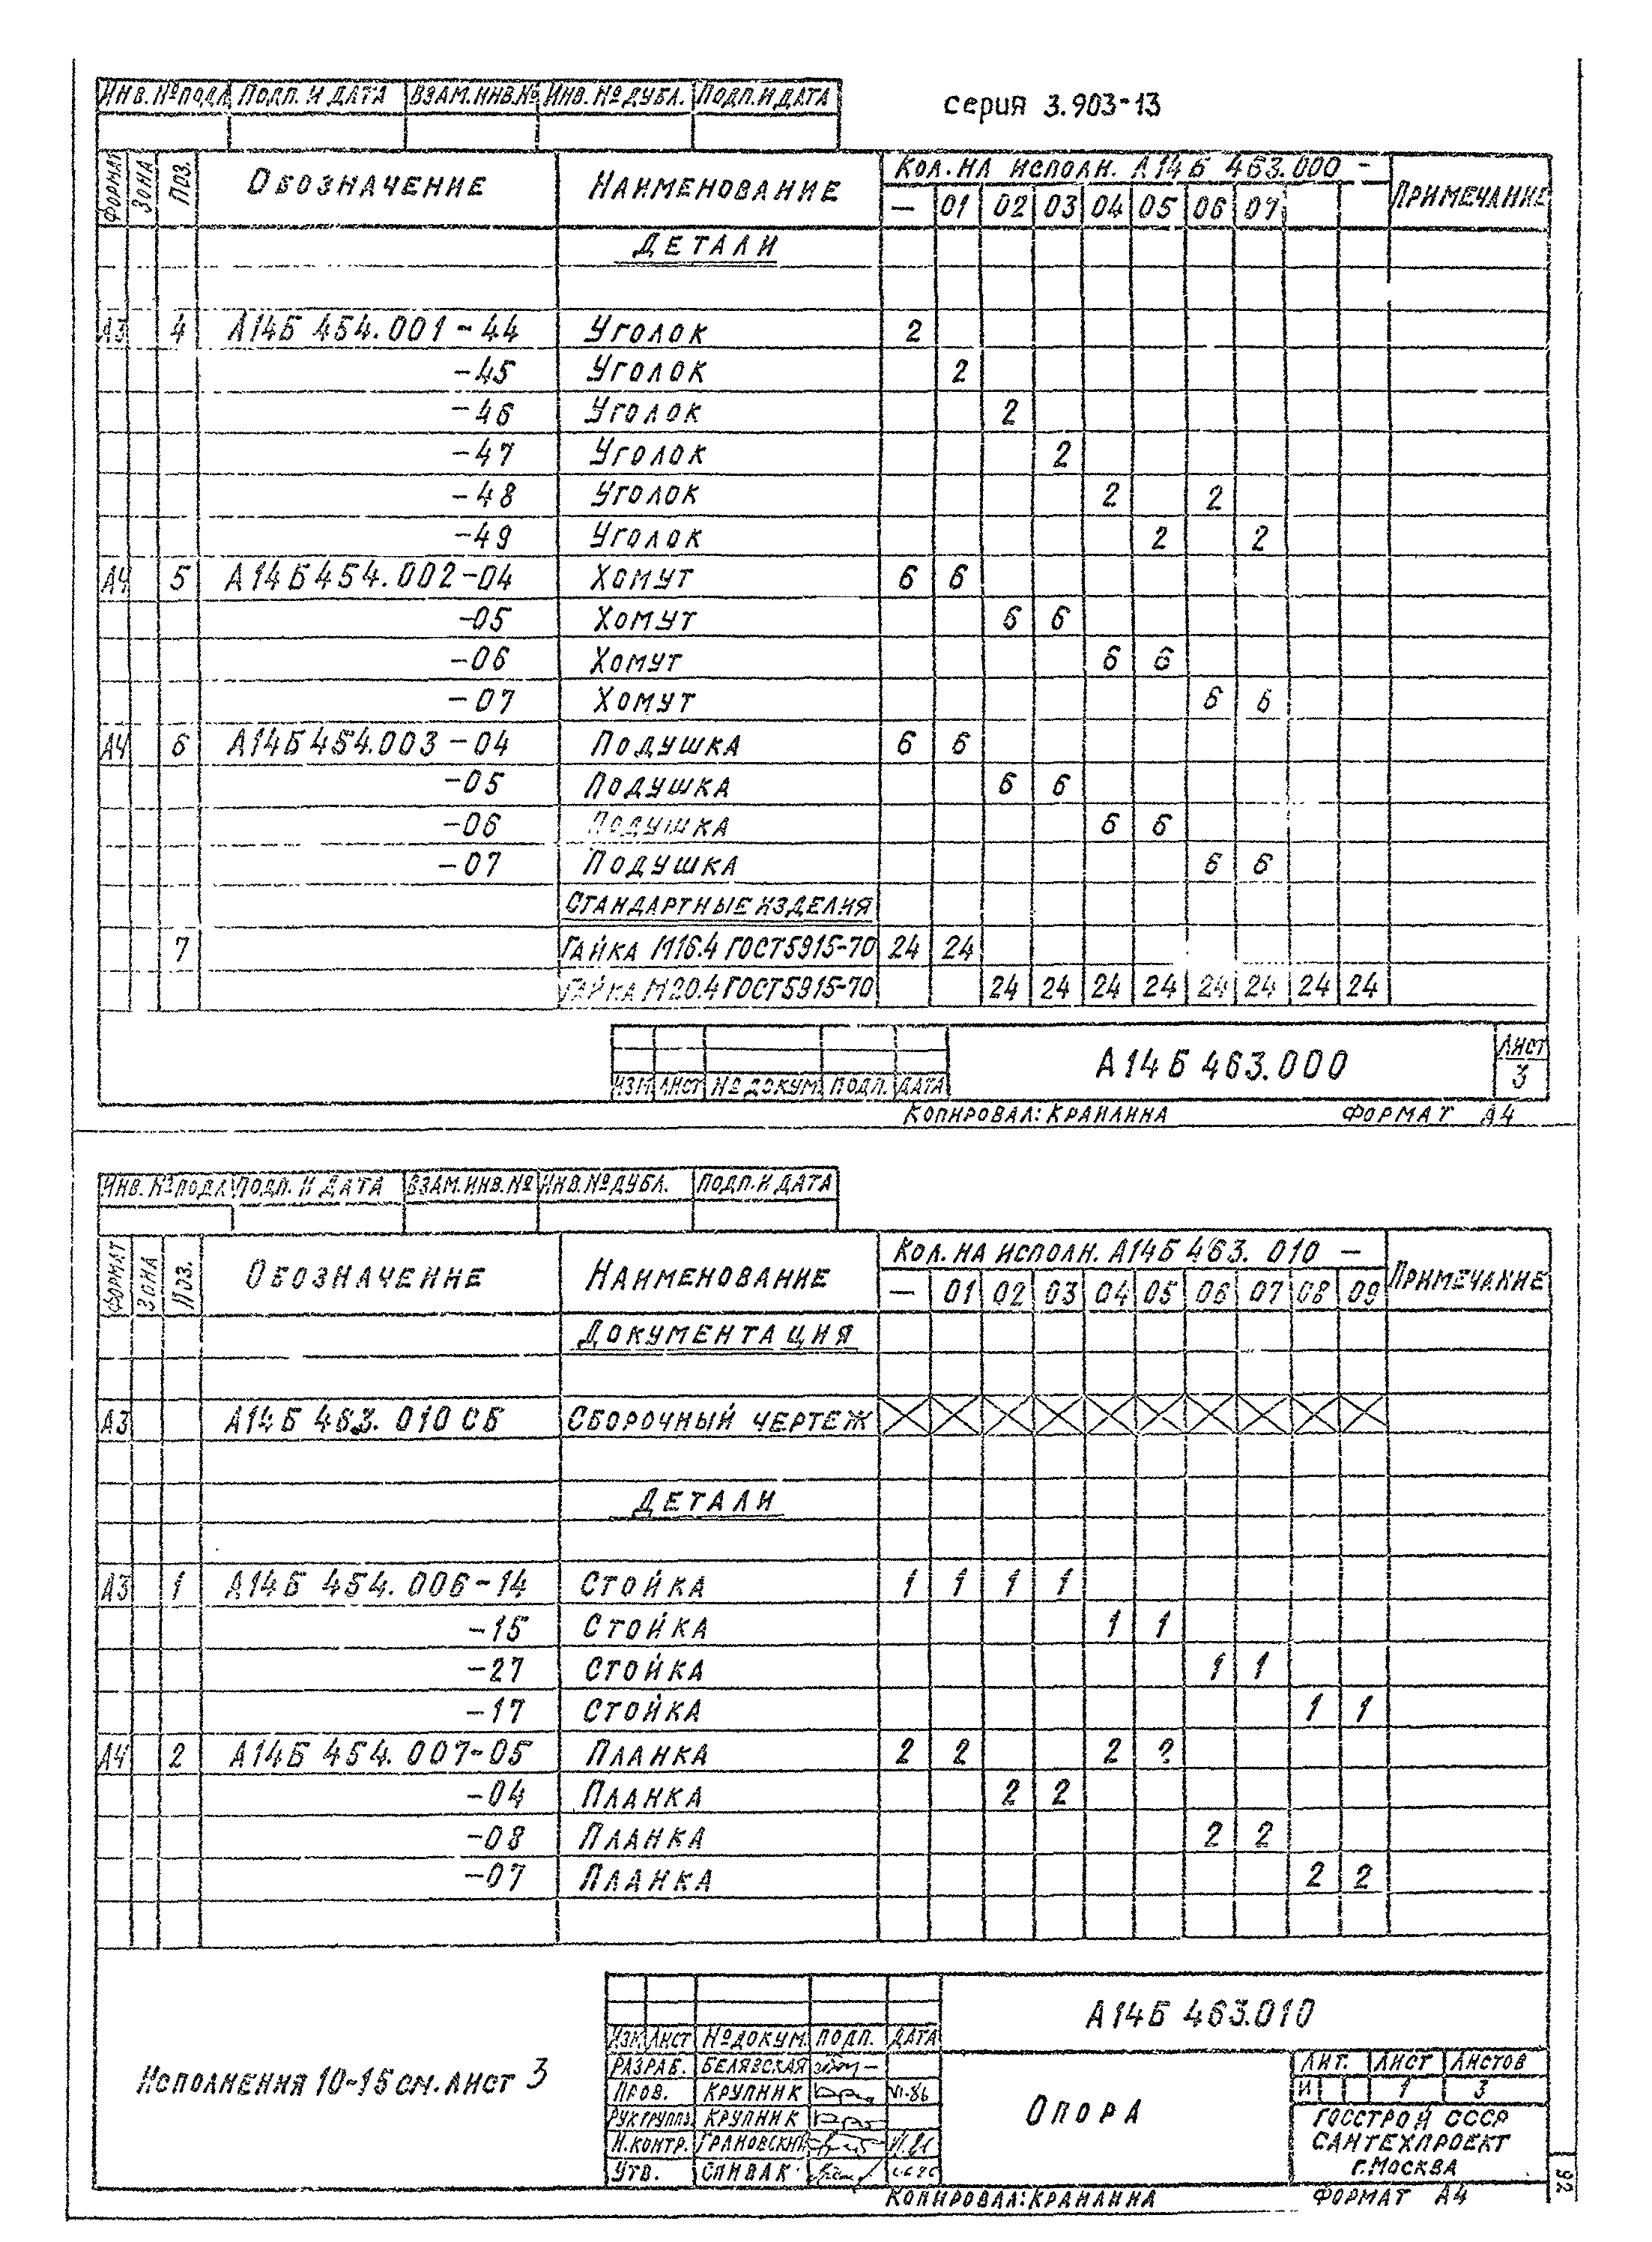 Серия 3.903-13
ИНВ. № ПОДЛ. ПОДП. И ДАТА ВЗАМ. ИНВ. № ИНВ. № ДУБЛ. ПОДП. И ДАТА
ФОРМАТ ЗОНА ПОЗ. ОБОЗНАЧЕНИЕ НАИМЕНОВАНИЕ КОЛ. НА ИСПОЛН. А14Б 463.000 - ПРИМЕЧАНИЕ
— 01 02 03 04 05 06 07
ДЕТАЛИ
А3 4 А14Б 454.001-44 УГОЛОК 2
-45 УГОЛОК 2
-46 УГОЛОК 2
-47 УГОЛОК 2
-48 УГОЛОК 2 2
-49 УГОЛОК 2 2
А4 5 А14Б454.002-04 ХОМУТ 6 6
-05 ХОМУТ 6 6
-06 ХОМУТ 6 6
-07 ХОМУТ 6 6
А4 6 А14Б454.003-04 ПОДУШКА 6 6
-05 ПОДУШКА 6 6
-06 ПОДУШКА 6 6
-07 ПОДУШКА 6 6
СТАНДАРТНЫЕ ИЗДЕЛИЯ
7 ГАЙКА М16.4 ГОСТ5915-70 24 24
ГАЙКА М20.4 ГОСТ5915-70 24 24 24 24 24 24 24 24
ИЗМ ЛИСТ № ДОКУМ. ПОДП. ДАТА
А14Б 463.000
ЛИСТ
3
КОПИРОВАЛ: КРАИЛИНА ФОРМАТ А4
ИНВ. № ПОДЛ. ПОДП. И ДАТА ВЗАМ. ИНВ. № ИНВ. № ДУБЛ. ПОДП. И ДАТА
ФОРМАТ ЗОНА ПОЗ. ОБОЗНАЧЕНИЕ НАИМЕНОВАНИЕ КОЛ. НА ИСПОЛН. А14Б 463.010 — ПРИМЕЧАНИЕ
— 01 02 03 04 05 06 07 08 09
ДОКУМЕНТАЦИЯ
А3 А14Б 463.010 СБ СБОРОЧНЫЙ ЧЕРТЕЖ
ДЕТАЛИ
А3 1 А14Б 454.006-14 СТОЙКА 1 1 1 1
-15 СТОЙКА 1 1
-27 СТОЙКА 1 1
-17 СТОЙКА 1 1
А4 2 А14Б 454.007-05 ПЛАНКА 2 2 2 2
-04 ПЛАНКА 2 2
-08 ПЛАНКА 2 2
-07 ПЛАНКА 2 2
ИСПОЛНЕНИЯ 10-15 СМ. ЛИСТ 3
ИЗМ ЛИСТ № ДОКУМ. ПОДП. ДАТА
РАЗРАБ. БЕЛЯВСКАЯ
ПРОВ. КРУПНИК VI-86
РУК ГРУППЫ КРУПНИК
Н.КОНТР. ГРАНОВСКИЙ
УТВ. СПИВАК
А14Б 463.010
ОПОРА
ЛИТ. ЛИСТ ЛИСТОВ
И 1 3
ГОССТРОЙ СССР
САНТЕХПРОЕКТ
г.МОСКВА
КОПИРОВАЛ: КРАИЛИНА ФОРМАТ А4